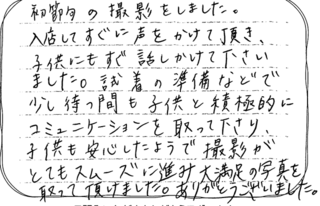 初節句の撮影をしました。
入店してすぐに声をかけて頂き、
子供にもすぐ話しかけて下さい
ました。試着の準備などで
少し待つ間も子供と積極的に
コミュニケーションを取って下さり、
子供も安心したようで撮影が
とてもスムーズに進み大満足の写真を
取って頂けました。ありがとうございました。